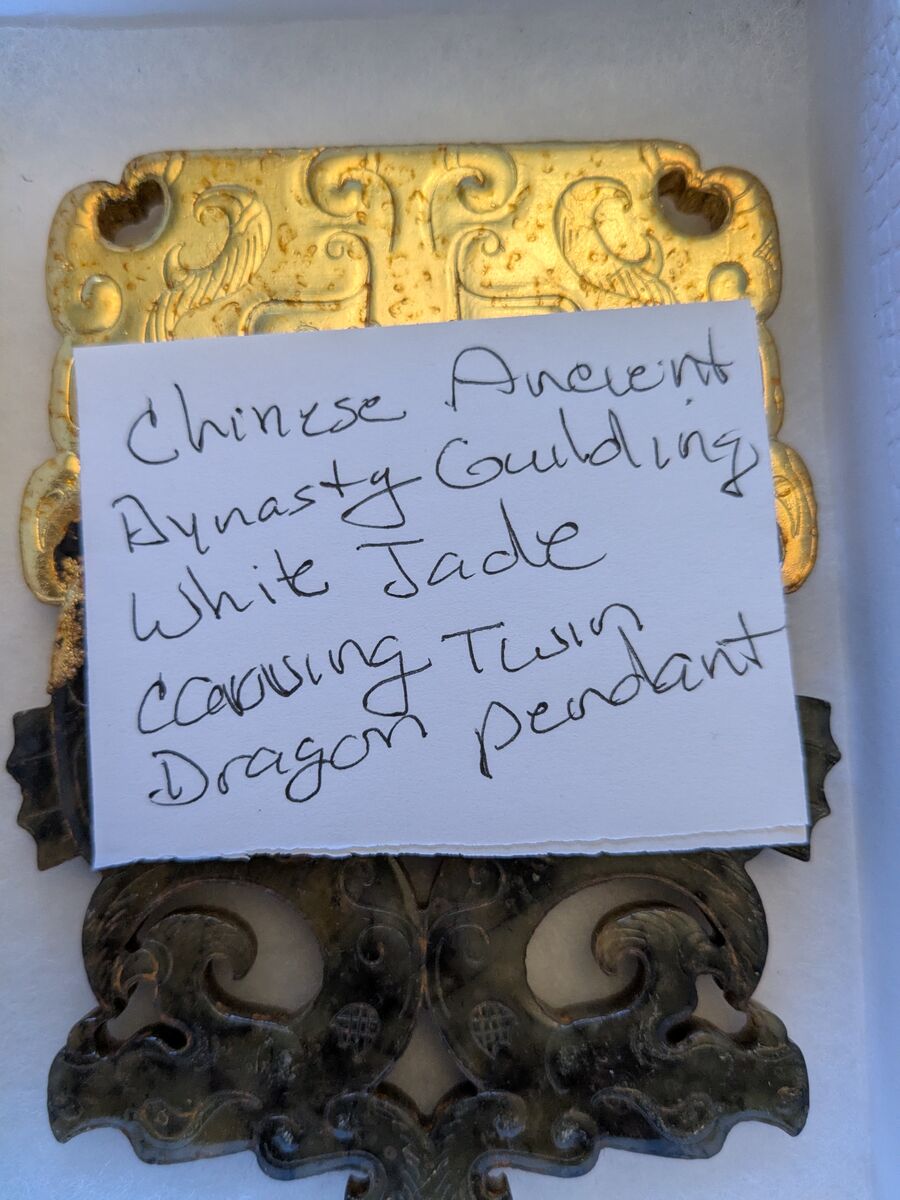 Chinese Ancient
Dynasty Guilding
White Jade
Carving Twin
Dragon pendant